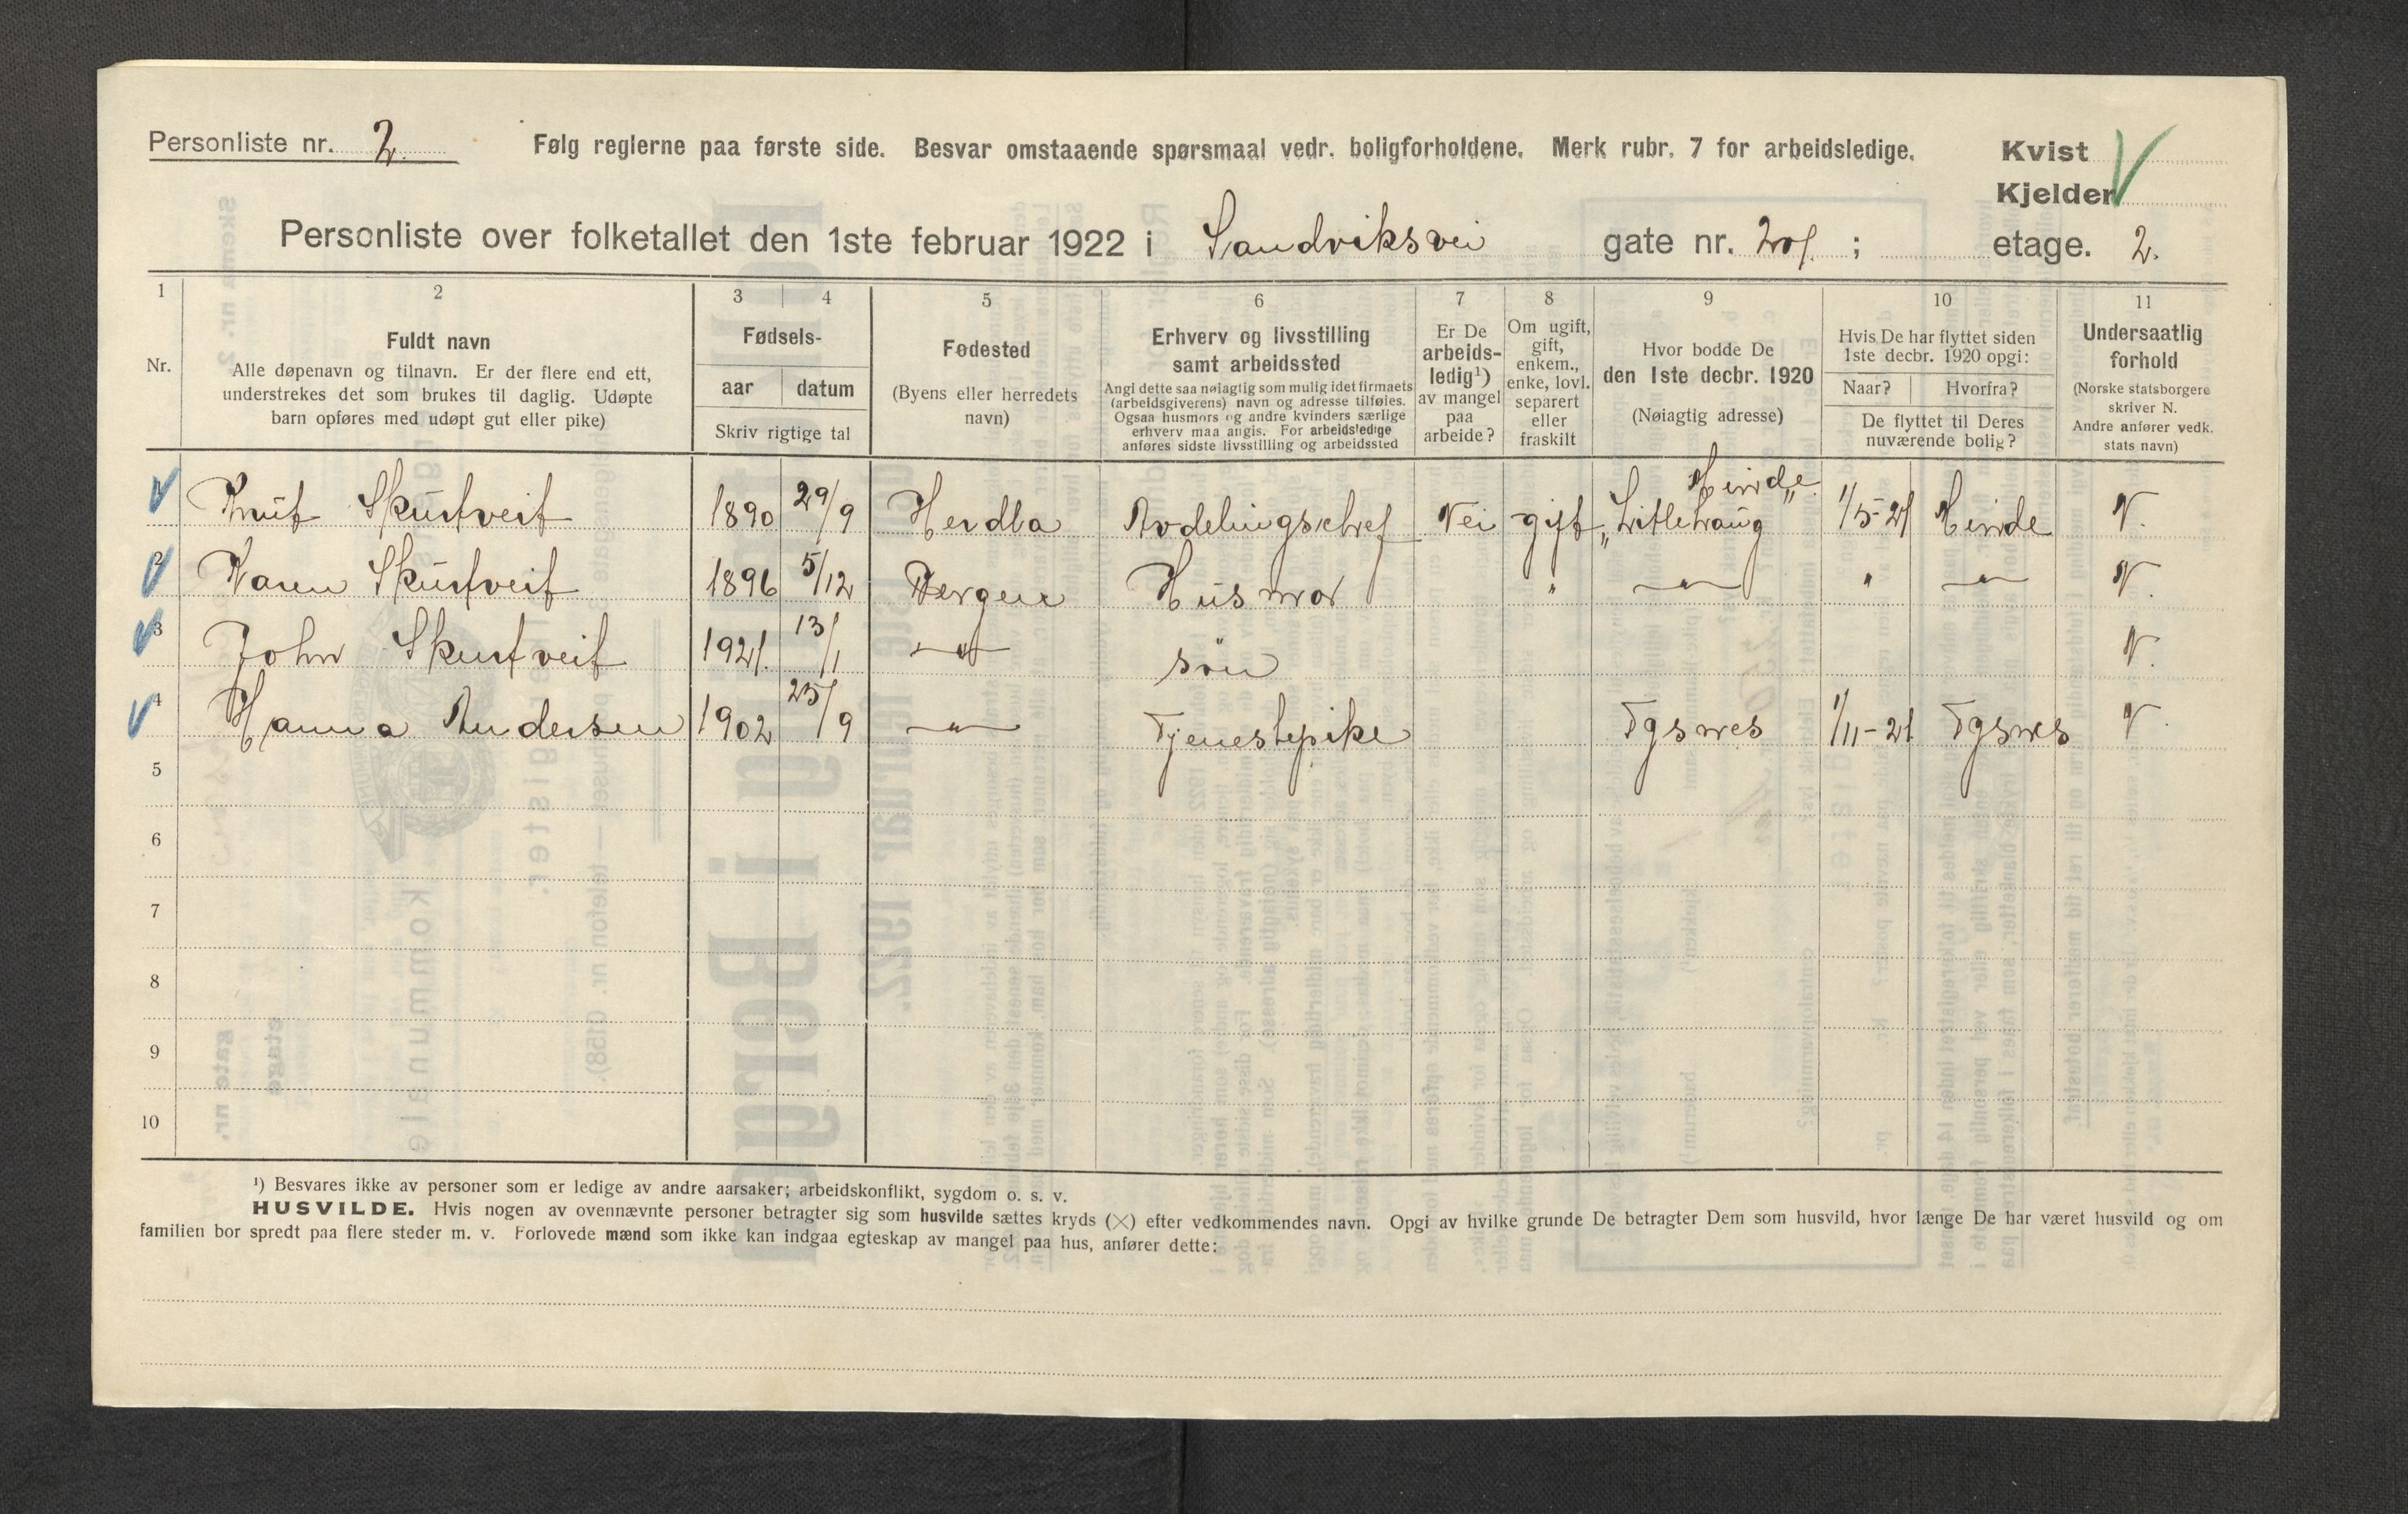 Personliste nr. 2.
Følg reglerne paa første side. Besvar omstaaende spørsmaal vedr. boligforholdene. Merk rubr. 7 for arbeidsledige.
Kvist
Kjelder
Personliste over folketallet den 1ste februar 1922 i Sandviksvei gate nr. ; etage. 2.
1 2 3 4 5 6 7 8 9 10 11
Nr.
Fuldt navn
Alle døpenavn og tilnavn. Er der flere end ett,
understrekes det som brukes til daglig. Udøpte
barn opføres med udøpt gut eller pike)
Fødsels-
aar datum
Skriv rigtige tal
Fødested
(Byens eller herredets
navn)
Erhverv og livsstilling
samt arbeidssted
Angi dette saa nøiagtig som mulig idet firmaets
(arbeidsgiverens) navn og adresse tilføies.
Ogsaa husmors og andre kvinders særlige
erhverv maa angis. For arbeidsledige
anføres sidste livsstilling og arbeidssted
Er De
arbeids-
ledig¹)
av mangel
paa
arbeide?
Om ugift,
gift,
enkem.,
enke, lovl.
separert
eller
fraskilt
Hvor bodde De
den 1ste decbr. 1920
(Nøiagtig adresse)
Hvis De har flyttet siden
1ste decbr. 1920 opgi:
Naar? Hvorfra?
De flyttet til Deres
nuværende bolig?
Undersaatlig
forhold
(Norske statsborgere
skriver N.
Andre anfører vedk.
stats navn)
1 Knut Skurtveit 1890 29/9 Herdla Avdelingschef Nei gift 1/5-21 N.
2 Karen Skurtveit 1896 5/12 Bergen Husmor " —"— " —"— N.
3 John Skurtveit 1921. 13/1 —"— søn N.
4 Hanna Andersen 1902 25/9 —"— Tjenestepike 1/11-21 N.
5
6
7
8
9
10
¹) Besvares ikke av personer som er ledige av andre aarsaker; arbeidskonflikt, sygdom o. s. v.
HUSVILDE. Hvis nogen av ovennævnte personer betragter sig som husvilde sættes kryds (×) efter vedkommendes navn. Opgi av hvilke grunde De betragter Dem som husvild, hvor længe De har været husvild og om
familien bor spredt paa flere steder m. v. Forlovede mænd som ikke kan indgaa egteskap av mangel paa hus, anfører dette: